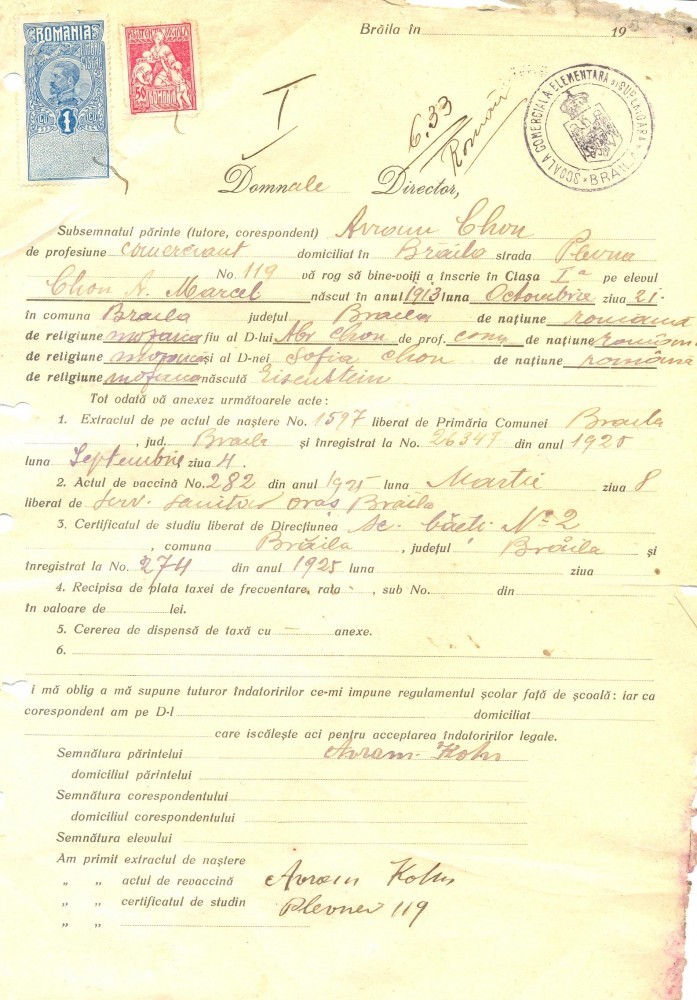 Brăila în 19
ROMANIA
1
ASISTENȚA SOCIALA
50 ROMANIA
I
6.33
Român
ȘCOALA COMERCIALA ELEMENTARA și SUPERIOARA BRAILA
Domnule Director,
Subsemnatul părinte (tutore, corespondent) Avram Chon
de profesiune comerciant domiciliat în Brăila strada Plevna
No. 119 vă rog să bine-voiți a înscrie în Clasa Iª pe elevul
Chon A. Marcel născut în anul 1913 luna Octombrie ziua 21.
în comuna Braila județul Braila de națiune română
de religiune mozaica fiu al D-lui Abr Chon de prof. com. de națiune român
de religiune mozaica și al D-nei Sofia Chon de națiune română
de religiune mozaica născută Eisenstein
Tot odată vă anexez următoarele acte :
1. Extractul de pe actul de naștere No. 1597 liberat de Primăria Comunei Braila
, jud. Braila și înregistrat la No. 26347 din anul 1920
luna Septembrie ziua 4.
2. Actul de vaccină No. 282 din anul 1925 luna Martie ziua 8
liberat de serv. sanitar oraș Brăila
3. Certificatul de studiu liberat de Direcțiunea sc. băeți No 2
, comuna Brăila , județul Brăila și
înregistrat la No. 274 din anul 1925 luna ziua
4. Recipisa de plata taxei de frecventare, rata , sub No. din
în valoare de lei.
5. Cererea de dispensă de taxă cu — anexe.
6.
i mă oblig a mă supune tuturor îndatoririlor ce-mi impune regulamentul școlar față de școală : iar ca
corespondent am pe D-l domiciliat
care iscălește aci pentru acceptarea îndatoririlor legale.
Semnătura părintelui Avram Kohn
domiciliul părintelui
Semnătura corespondentului
domiciliul corespondentului
Semnătura elevului
Am primit extractul de naștere
„ „ actul de revaccină Avram Kohn
„ „ certificatul de studin Plevnei 119
„ „